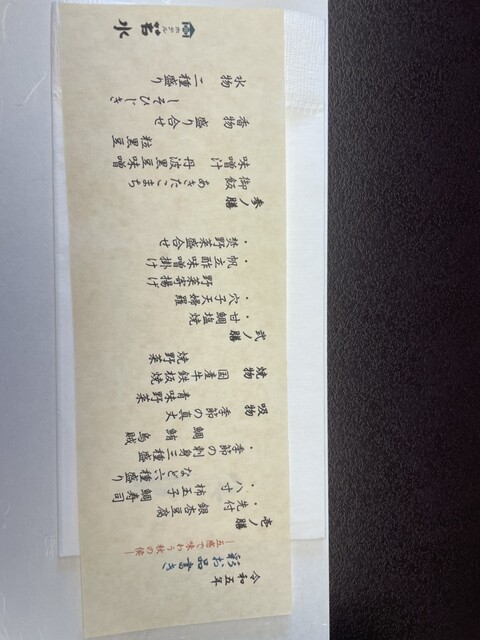 令和五年
彩お品書き
―五感で味わう秋の候―
壱ノ膳
・先付 銀杏豆腐
・八寸 柿玉子 鯛寿司
など六種盛り
・季節の刺身三種盛
鯛 鮪 烏賊
吸物 季節の真丈
青味野菜
焼物 国産牛鉄板焼
焼野菜
弐ノ膳
・甘鯛塩焼
・穴子天婦羅
野菜寄揚げ
・帆立酢味噌掛け
・焚野菜盛合せ
参ノ膳
御飯 あきたこまち
味噌汁 丹波黒豆味噌
粒黒豆
香物 盛り合せ
しそひじき
水物 二種盛り
ホテル